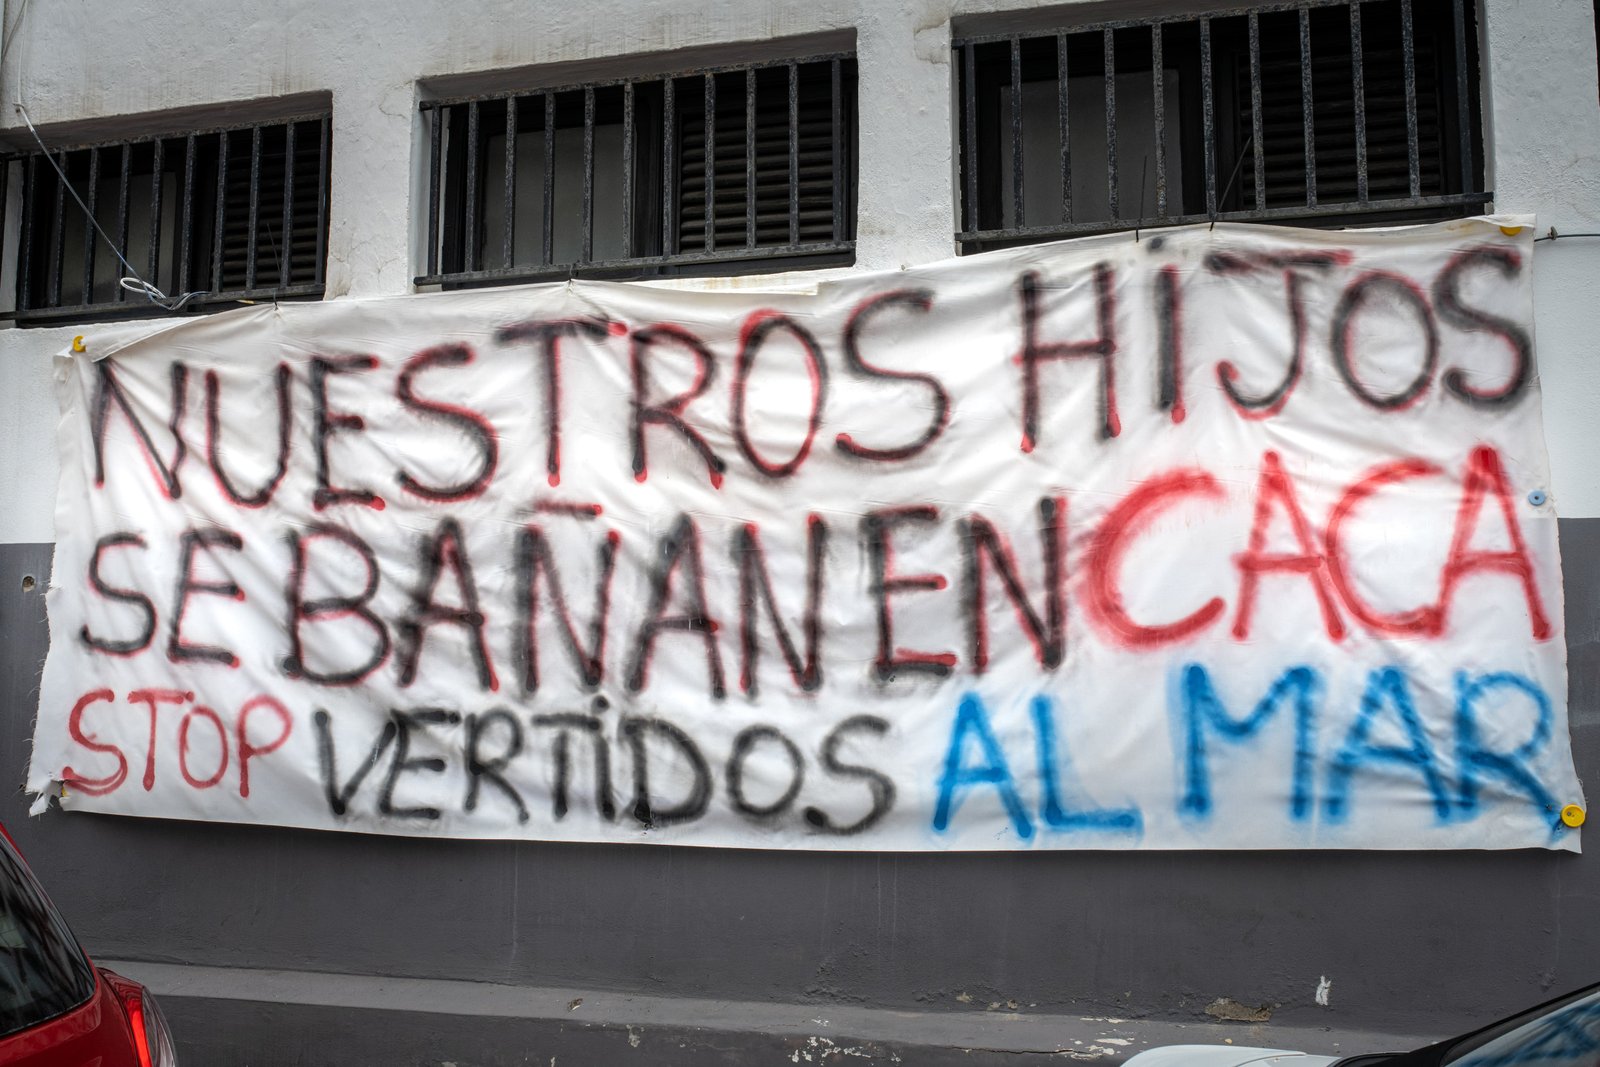 NUESTROS HIJOS
SE BAÑAN EN CACA
STOP VERTIDOS AL MAR